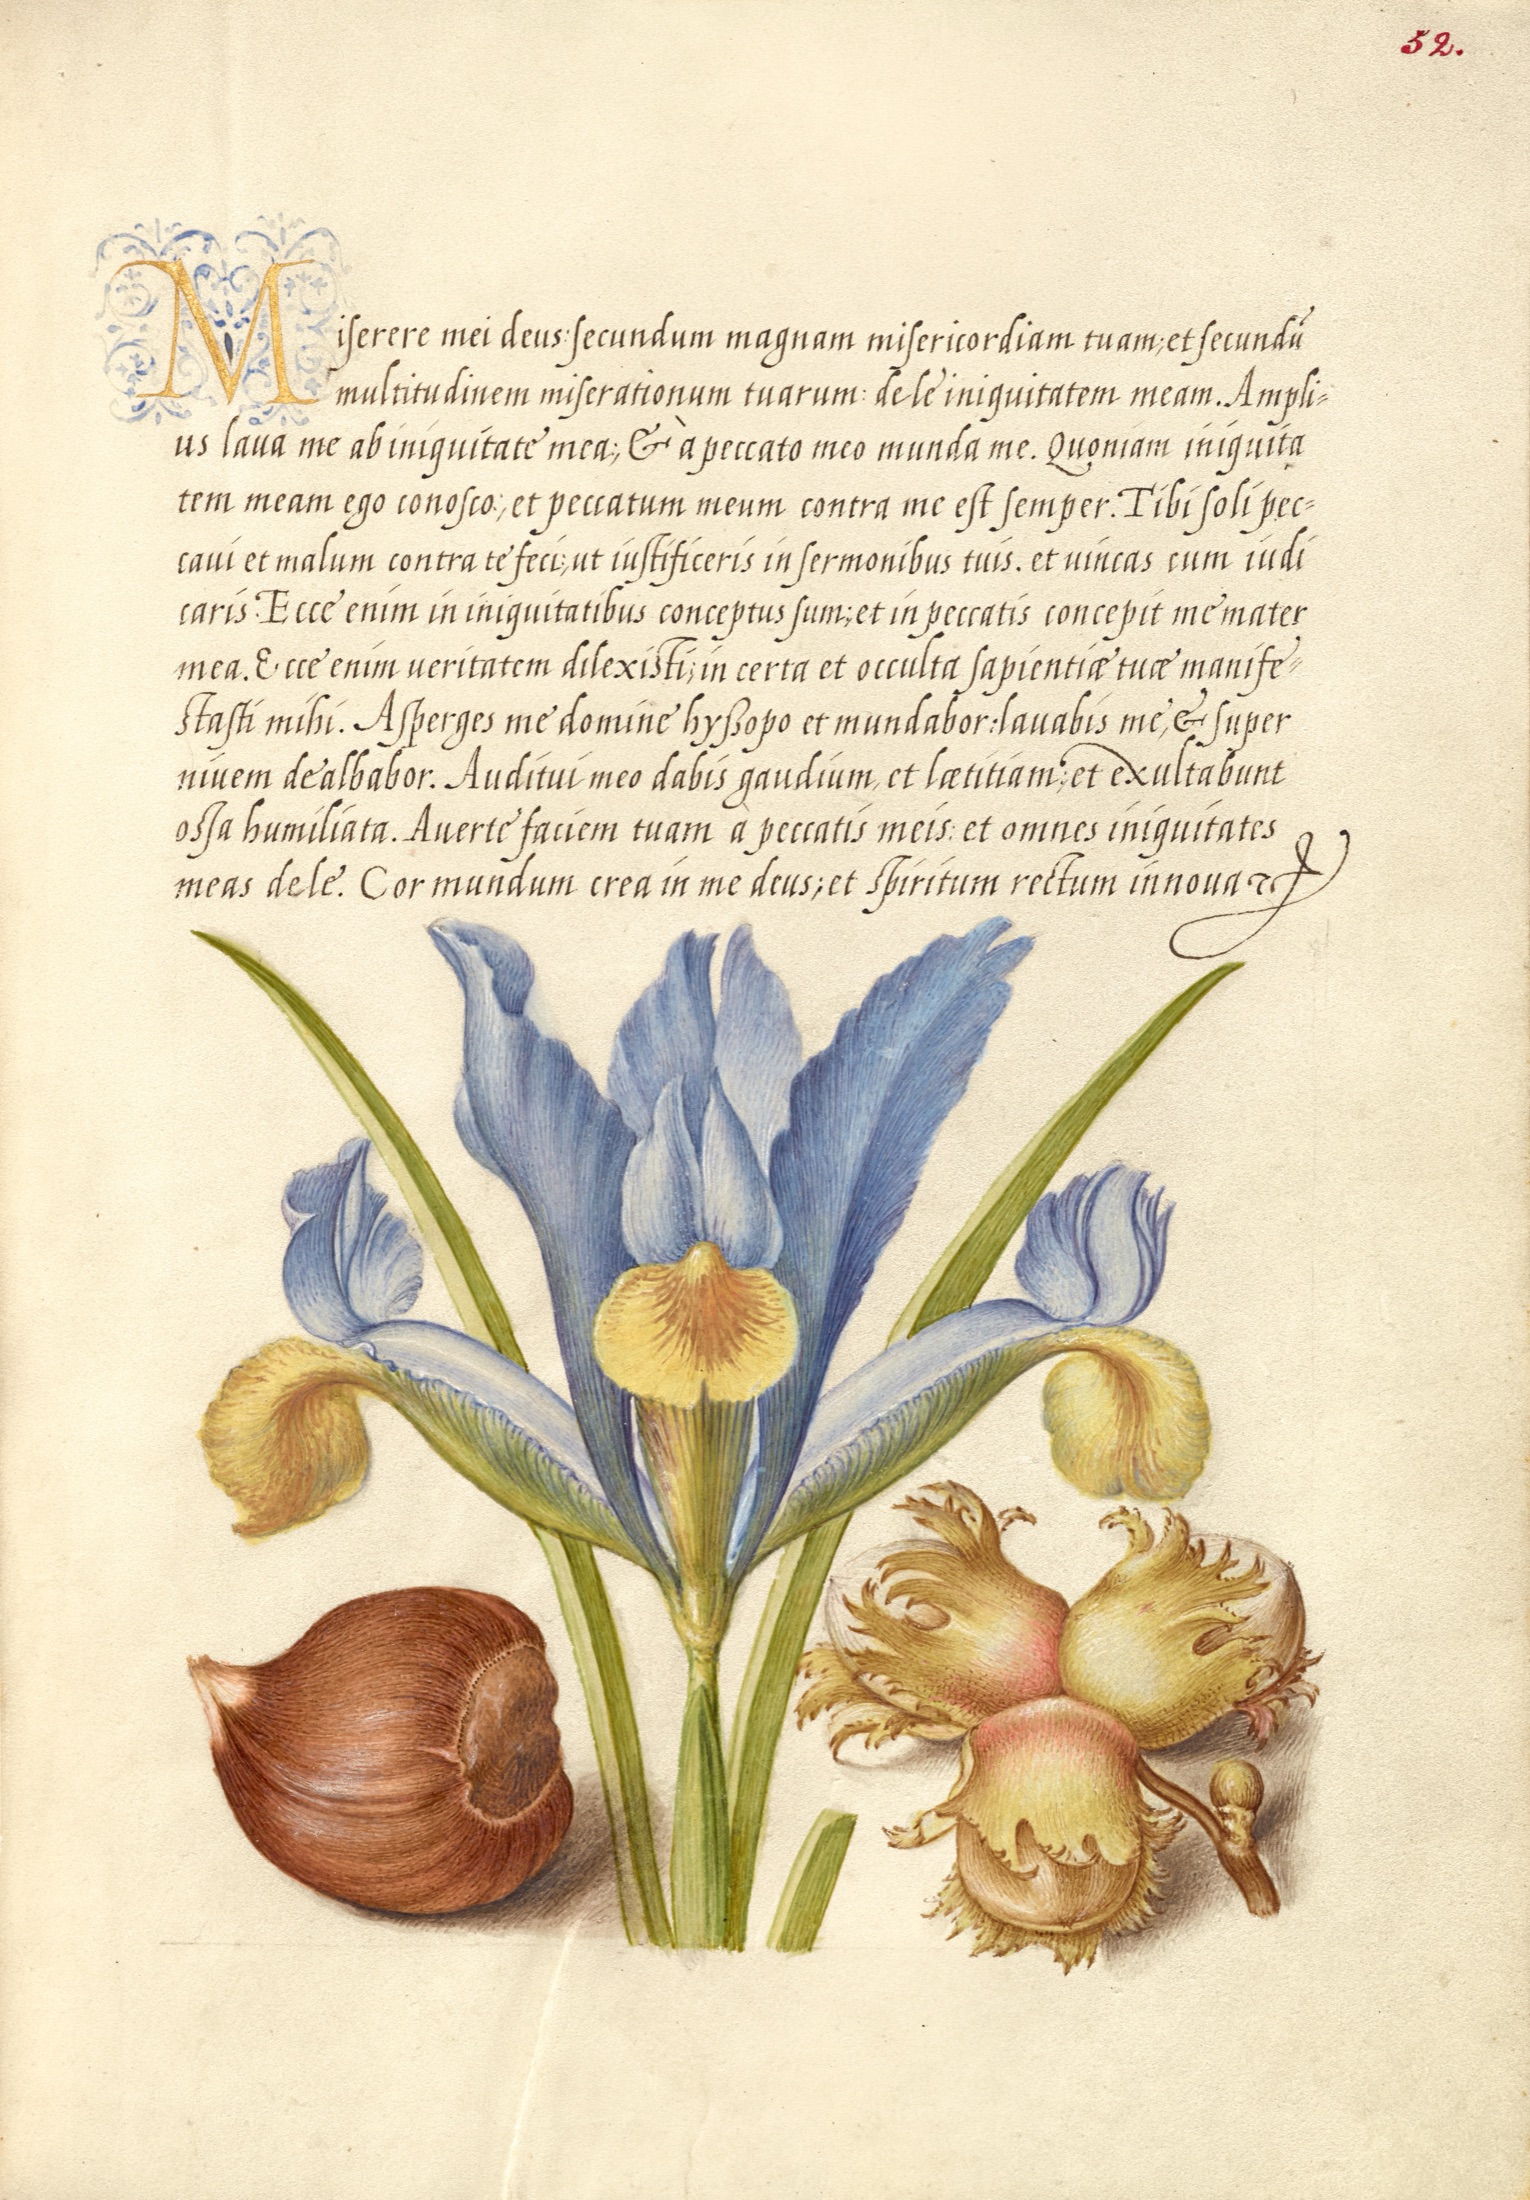 52.
Miſerere mei deus: ſecundum magnam miſericordiam tuam; et ſecundū
multitudinem miſerationum tuarum: dele iniquitatem meam. Ampli=
us laua me ab iniquitate mea; & à peccato meo munda me. Quoniam iniquita
tem meam ego conoſco; et peccatum meum contra me eſt ſemper. Tibi ſoli pec=
caui et malum contra te feci; ut iuſtificeris in ſermonibus tuis. et uincas cum iudi
caris. Ecce enim in iniquitatibus conceptus ſum; et in peccatis concepit me mater
mea. Ecce enim ueritatem dilexiſti; in certa et occulta ſapientiæ tuæ manife=
ſtaſti mihi. Aſperges me domine hyſſopo et mundabor: lauabis me, & ſuper
niuem dealbabor. Auditui meo dabis gaudium, et lætitiam; et exultabunt
oſſa humiliata. Auerte faciem tuam à peccatis meis: et omnes iniquitates
meas dele. Cor mundum crea in me deus; et ſpiritum rectum innoua